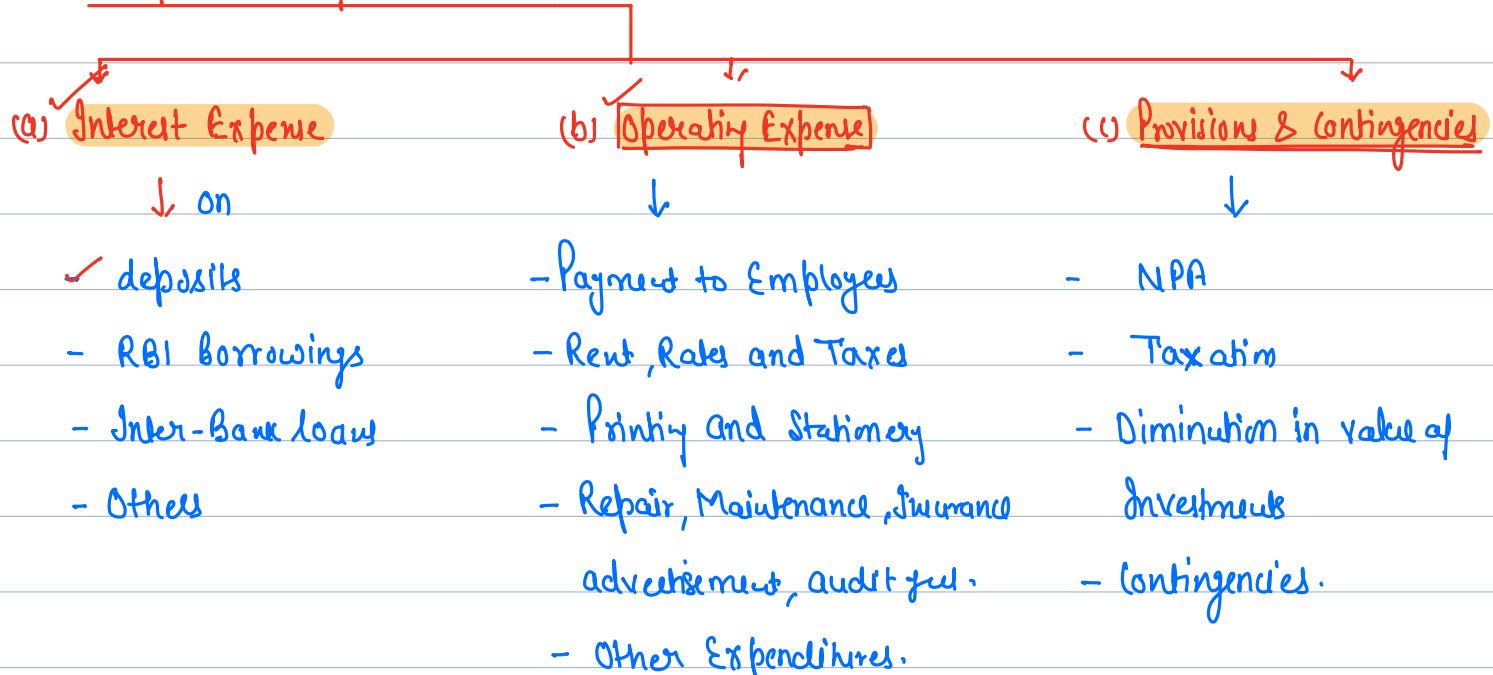 (a) Interest Expense
↓ on
deposits
- RBI borrowings
- Inter-Bank loans
- Others
(b) Operating Expense
- Payment to Employees
- Rent, Rates and Taxes
- Printing and Stationery
- Repair, Maintenance, Insurance
advertisement, audit fees.
- Other Expenditures.
(c) Provisions & Contingencies
- NPA
- Taxation
- Diminution in value of
Investments
- Contingencies.